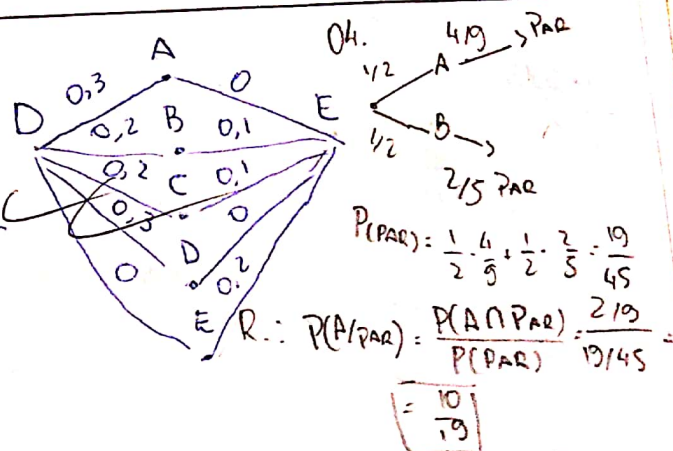 A
0,3
0
D
E
0,2
B
0,1
0,2
C
0,1
0,3
0
D
0
0,2
E
04.
1/2
A
4/9
PAR
1/2
B
2/5 PAR
P(PAR) = 1/2 · 4/9 + 1/2 · 2/5 = 19/45
R∴ P(A/PAR) = P(A∩PAR)/P(PAR) = 2/9 / 19/45 =
= 10/19